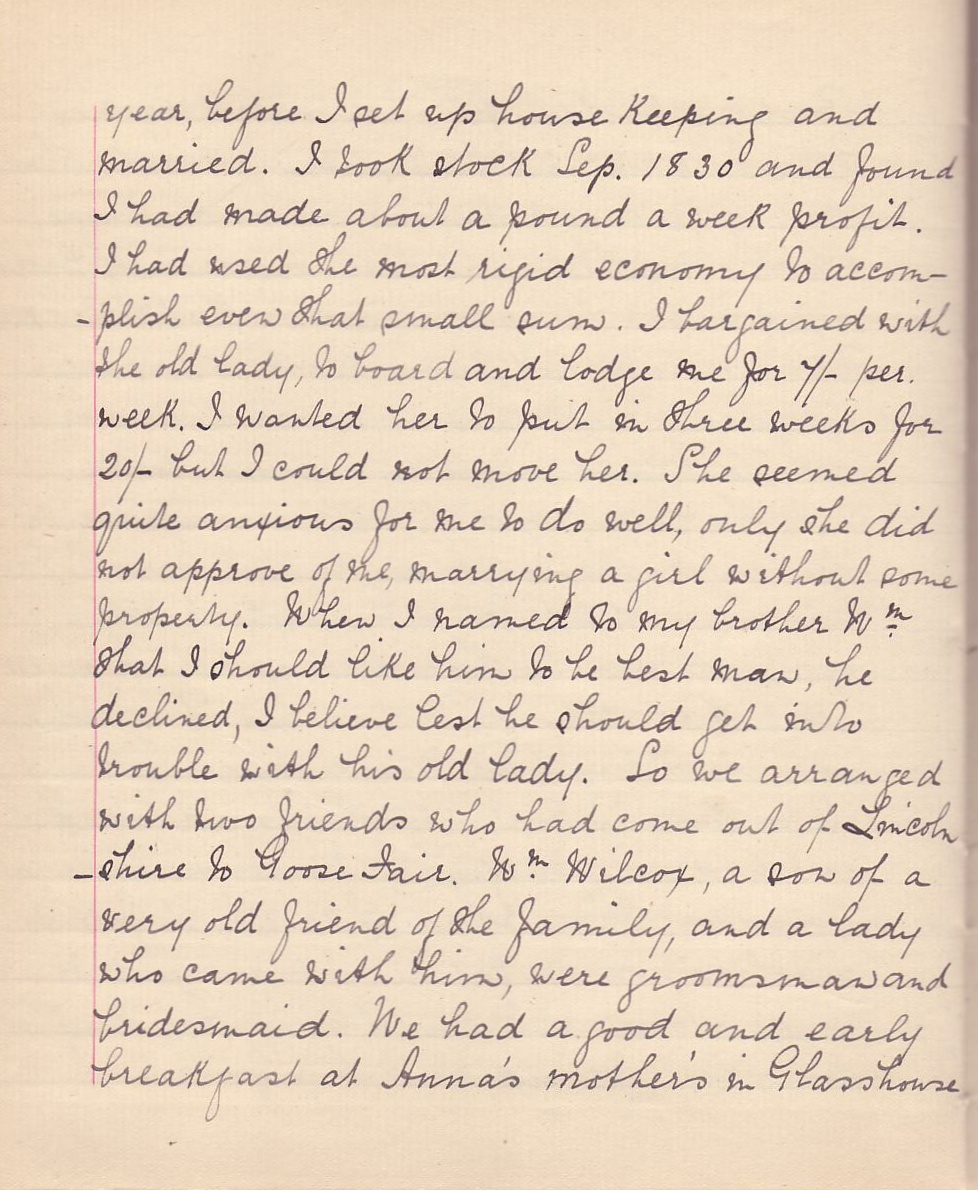 year, before I set up house Keeping and
married. I took stock Sep. 1830 and found
I had made about a pound a week profit.
I had used the most rigid economy to accom-
-plish even that small sum. I bargained with
the old lady, to board and lodge me for 7/- per.
week. I wanted her to put in three weeks for
20/- but I could not move her. She seemed
quite anxious for me to do well, only she did
not approve of me, marrying a girl without some
property. When I named to my brother Wm
that I should like him to be best man, he
declined, I believe lest he should get into
trouble with his old lady. So we arranged
with two friends who had come out of Lincoln
-shire to Goose Fair. Wm Wilcox, a son of a
very old friend of the family, and a lady
who came with him, were groomsman and
bridesmaid. We had a good and early
breakfast at Anna's mother's in Glasshouse